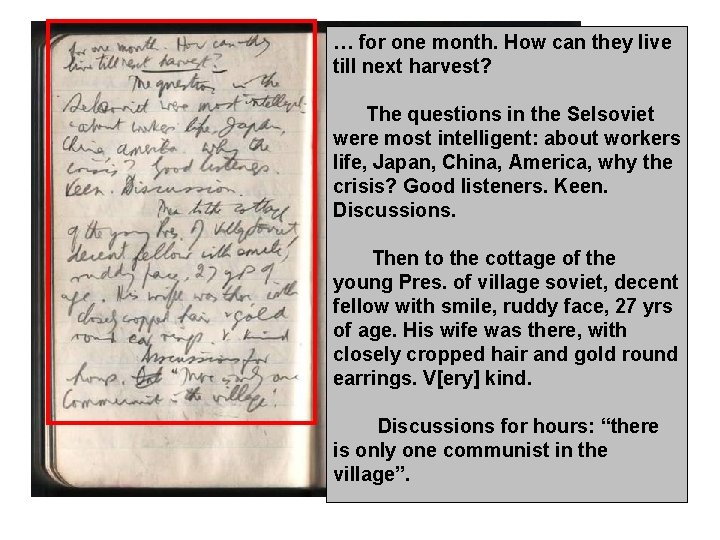 for one month. How can they
live till next harvest?
The questions in the
Selsoviet were most intelligent:
about workers life, Japan,
China, America, why the
crisis? Good listeners.
Keen. Discussion.
Then to the cottage
of the young Pres. of village Soviet,
decent fellow with smile,
ruddy face, 27 yrs of
age. His wife was there with
closely cropped hair & gold
round ear rings. V kind
Discussions for
hours. "There is only one
Communist in the village".
… for one month. How can they live
till next harvest?
The questions in the Selsoviet
were most intelligent: about workers
life, Japan, China, America, why the
crisis? Good listeners. Keen.
Discussions.
Then to the cottage of the
young Pres. of village soviet, decent
fellow with smile, ruddy face, 27 yrs
of age. His wife was there, with
closely cropped hair and gold round
earrings. V[ery] kind.
Discussions for hours: “there
is only one communist in the
village”.